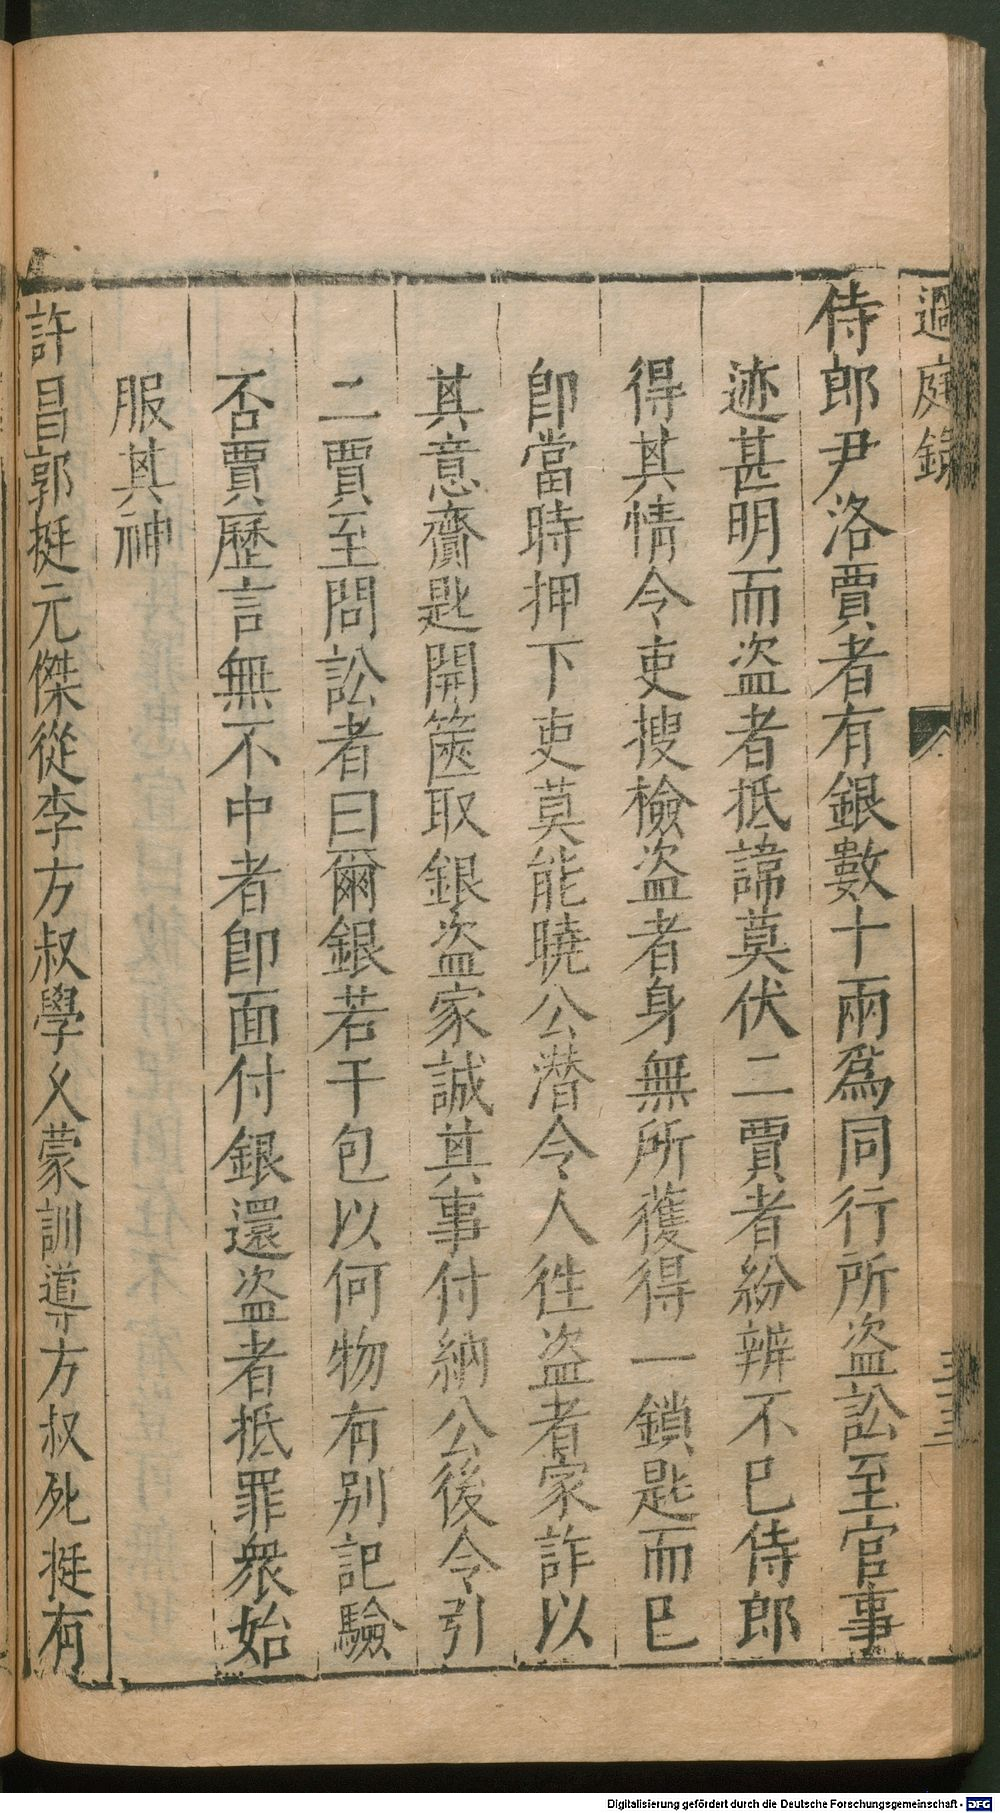 過庭錄
三三
侍郎尹洛賈者有銀數十兩爲同行所盜訟至官事
迹甚明而盜者抵諱莫伏二賈者紛辨不已侍郎
得其情令吏搜檢盜者身無所獲得一鎖匙而已
卽當時押下吏莫能曉公潜令人徃盜者家詐以
其意齎匙開篋取銀盜家誠其事付納公後令引
二賈至問訟者曰爾銀若干包以何物有別記驗
否賈歷言無不中者卽面付銀還盜者抵罪衆始
服其神
許昌郭挺元傑從李方叔學乆蒙訓導方叔死挺有
Digitalisierung gefördert durch die Deutsche Forschungsgemeinschaft - DFG